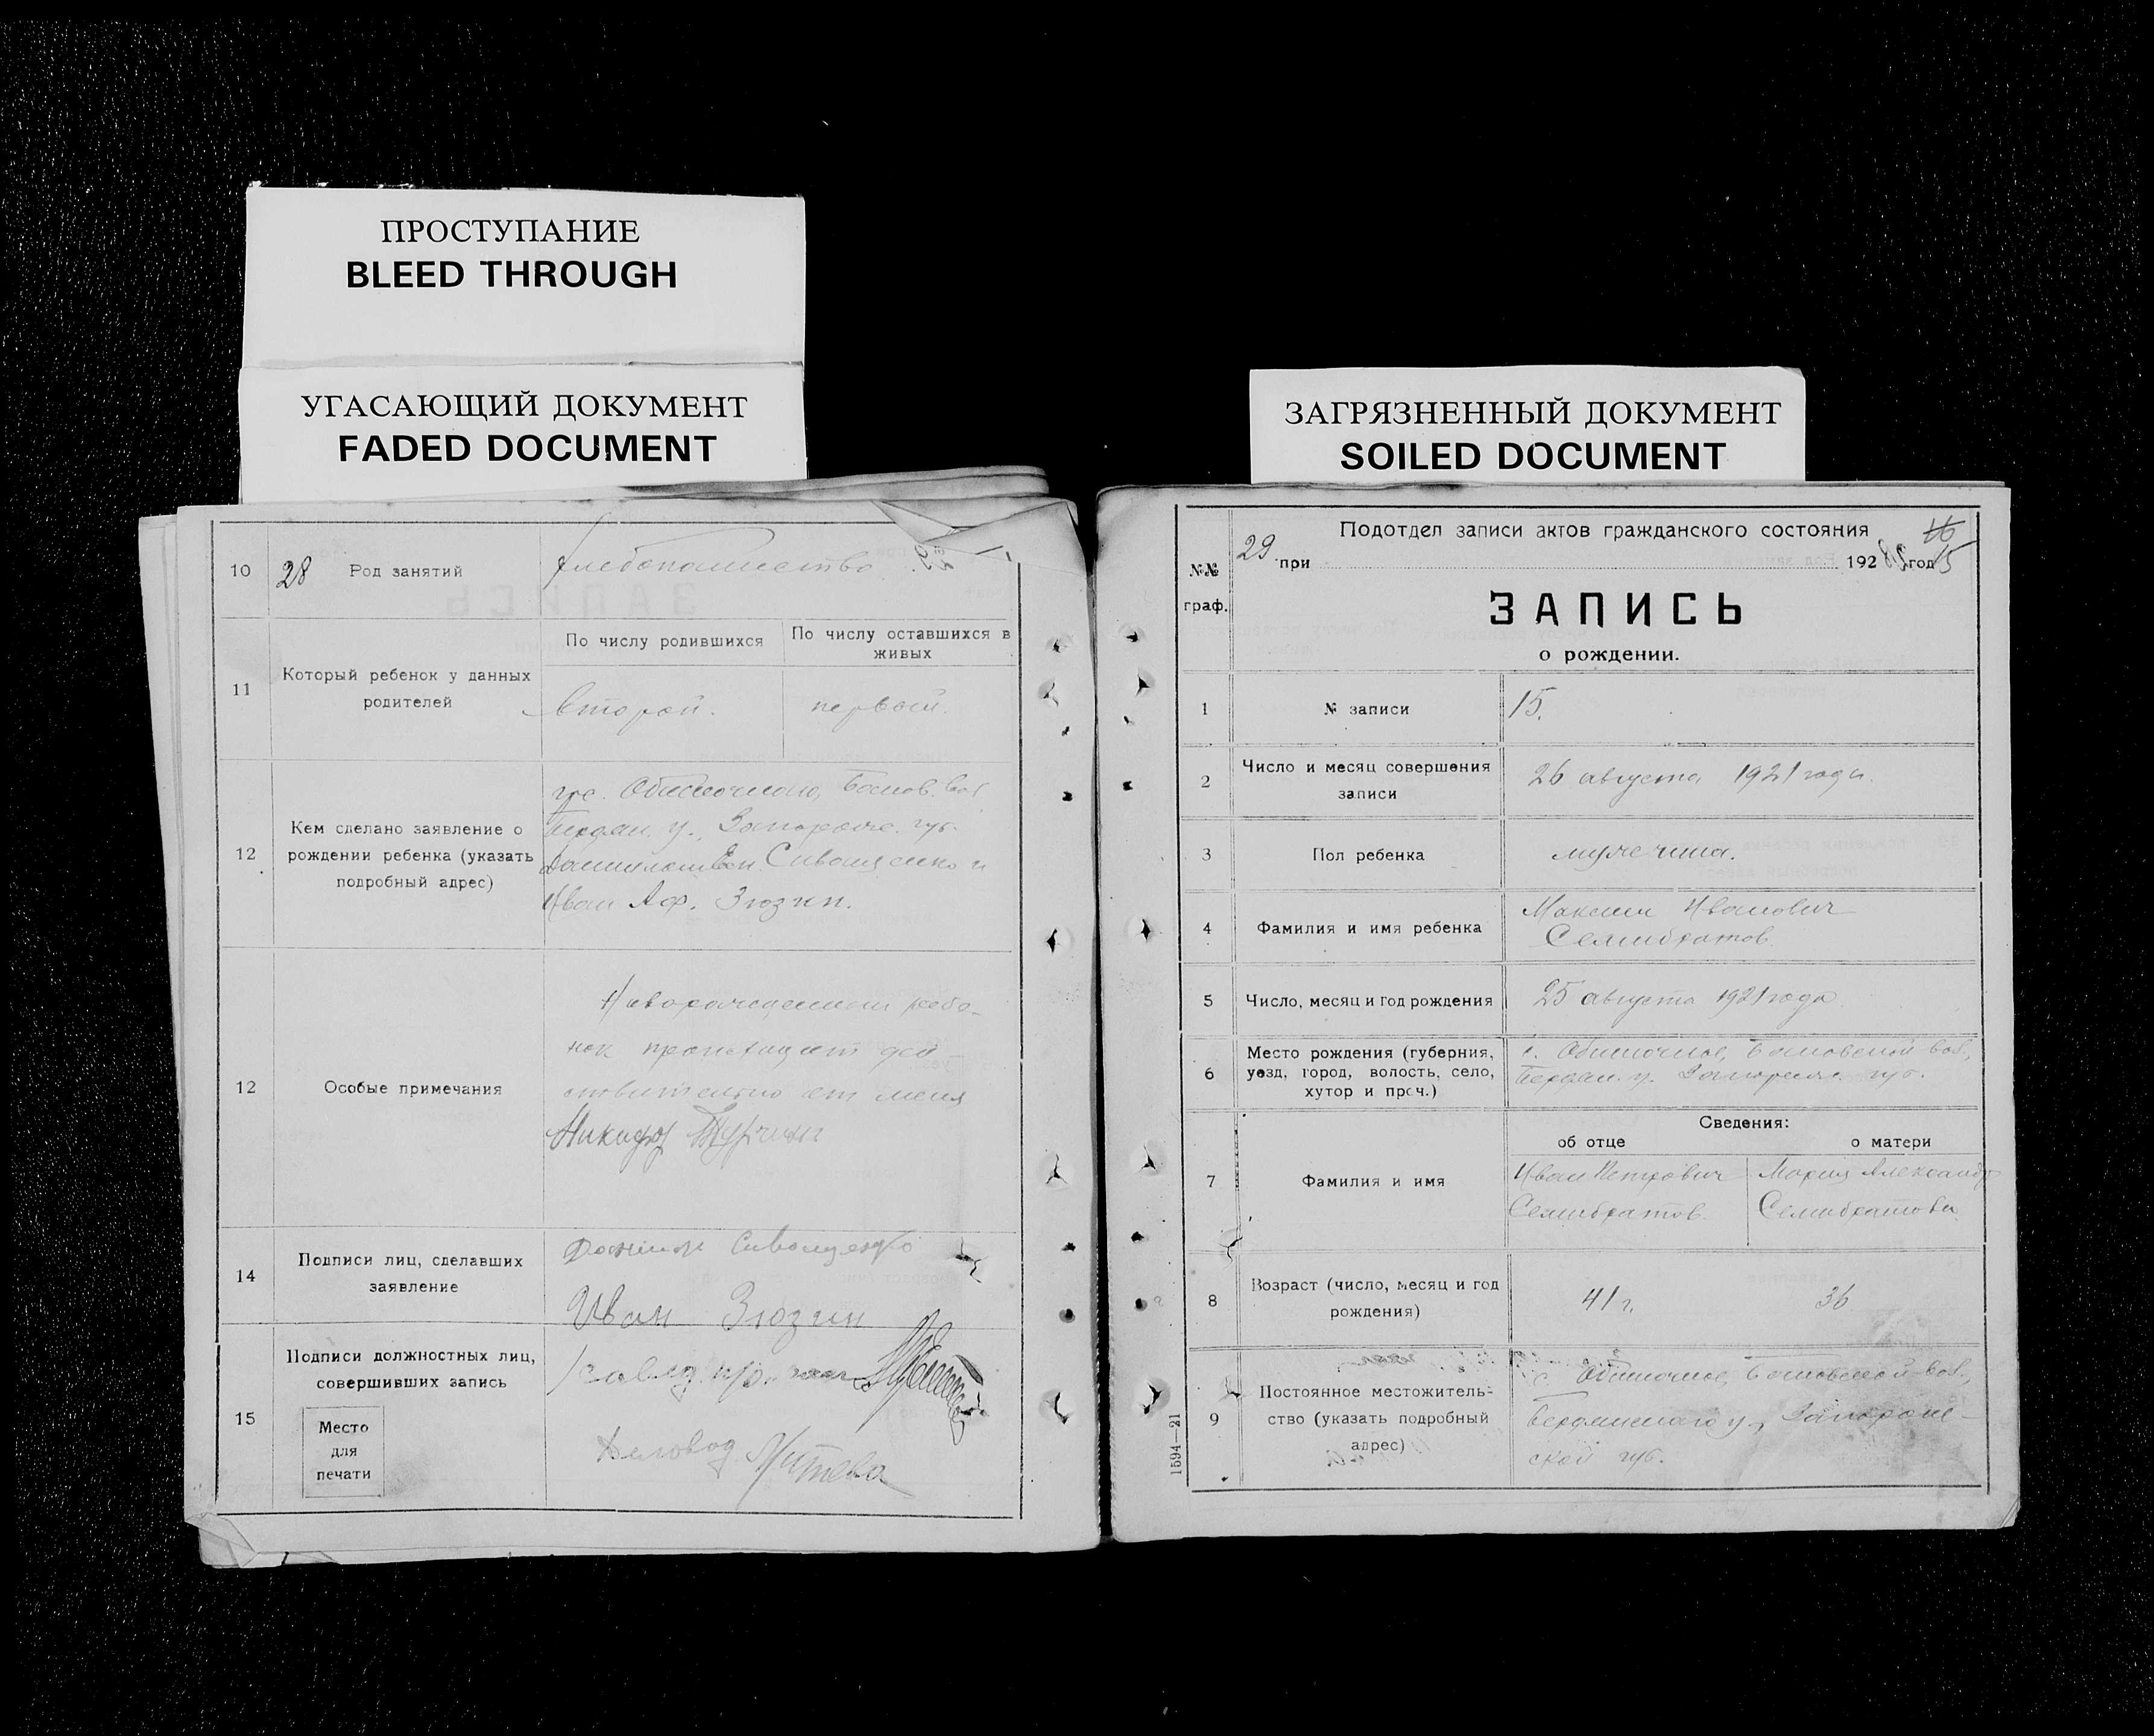 ПРОСТУПАНИЕ
BLEED THROUGH
УГАСАЮЩИЙ ДОКУМЕНТ
FADED DOCUMENT
ЗАГРЯЗНЕННЫЙ ДОКУМЕНТ
SOILED DOCUMENT
10
28
Род занятий
хлебопашество
11
Который ребенок у данных
родителей
По числу родившихся
второй.
По числу оставшихся в
живых
первый.
12
Кем сделано заявление о
рождении ребенка (указать
подробный адрес)
гр.
Бердян. у., Запорож. губ.
Сиващенко и
Иван Аф. Зюзин.
12
Особые примечания
Новорожденный ребе-
нок происходит дей
ствительно от меня
Никифор
14
Подписи лиц, сделавших
заявление
Сиващенко
Иван Зюзин
15
Подписи должностных лиц,
совершивших запись
Место
для
печати
завед.
Деловод
Подотдел записи актов гражданского состояния
16
15
№№
граф.
29
при 192 год
ЗАПИСЬ
о рождении.
1
№ записи
15.
2
Число и месяц совершения
записи
26 августа 1921 года.
3
Пол ребенка
мужчина.
4
Фамилия и имя ребенка
Максим Иванович
Семибратов.
5
Число, месяц и год рождения
25 августа 1921 года
6
Место рождения (губерния,
уезд, город, волость, село,
хутор и проч.)
с. Обиточное, вол.,
Бердян. у. Запорож. губ.
7
Фамилия и имя
Сведения:
об отце
о матери
Иван Петрович
Семибратов.
Мария Александр
Семибратова
8
Возраст (число, месяц и год
рождения)
41 г.
36
9
Постоянное местожитель-
ство (указать подробный
адрес)
с. Обиточное, вол.,
Бердянского у., Запорож-
ской губ.
1594—21